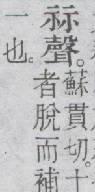 祘聲。蘇貫切。十
者脫而補
一也。